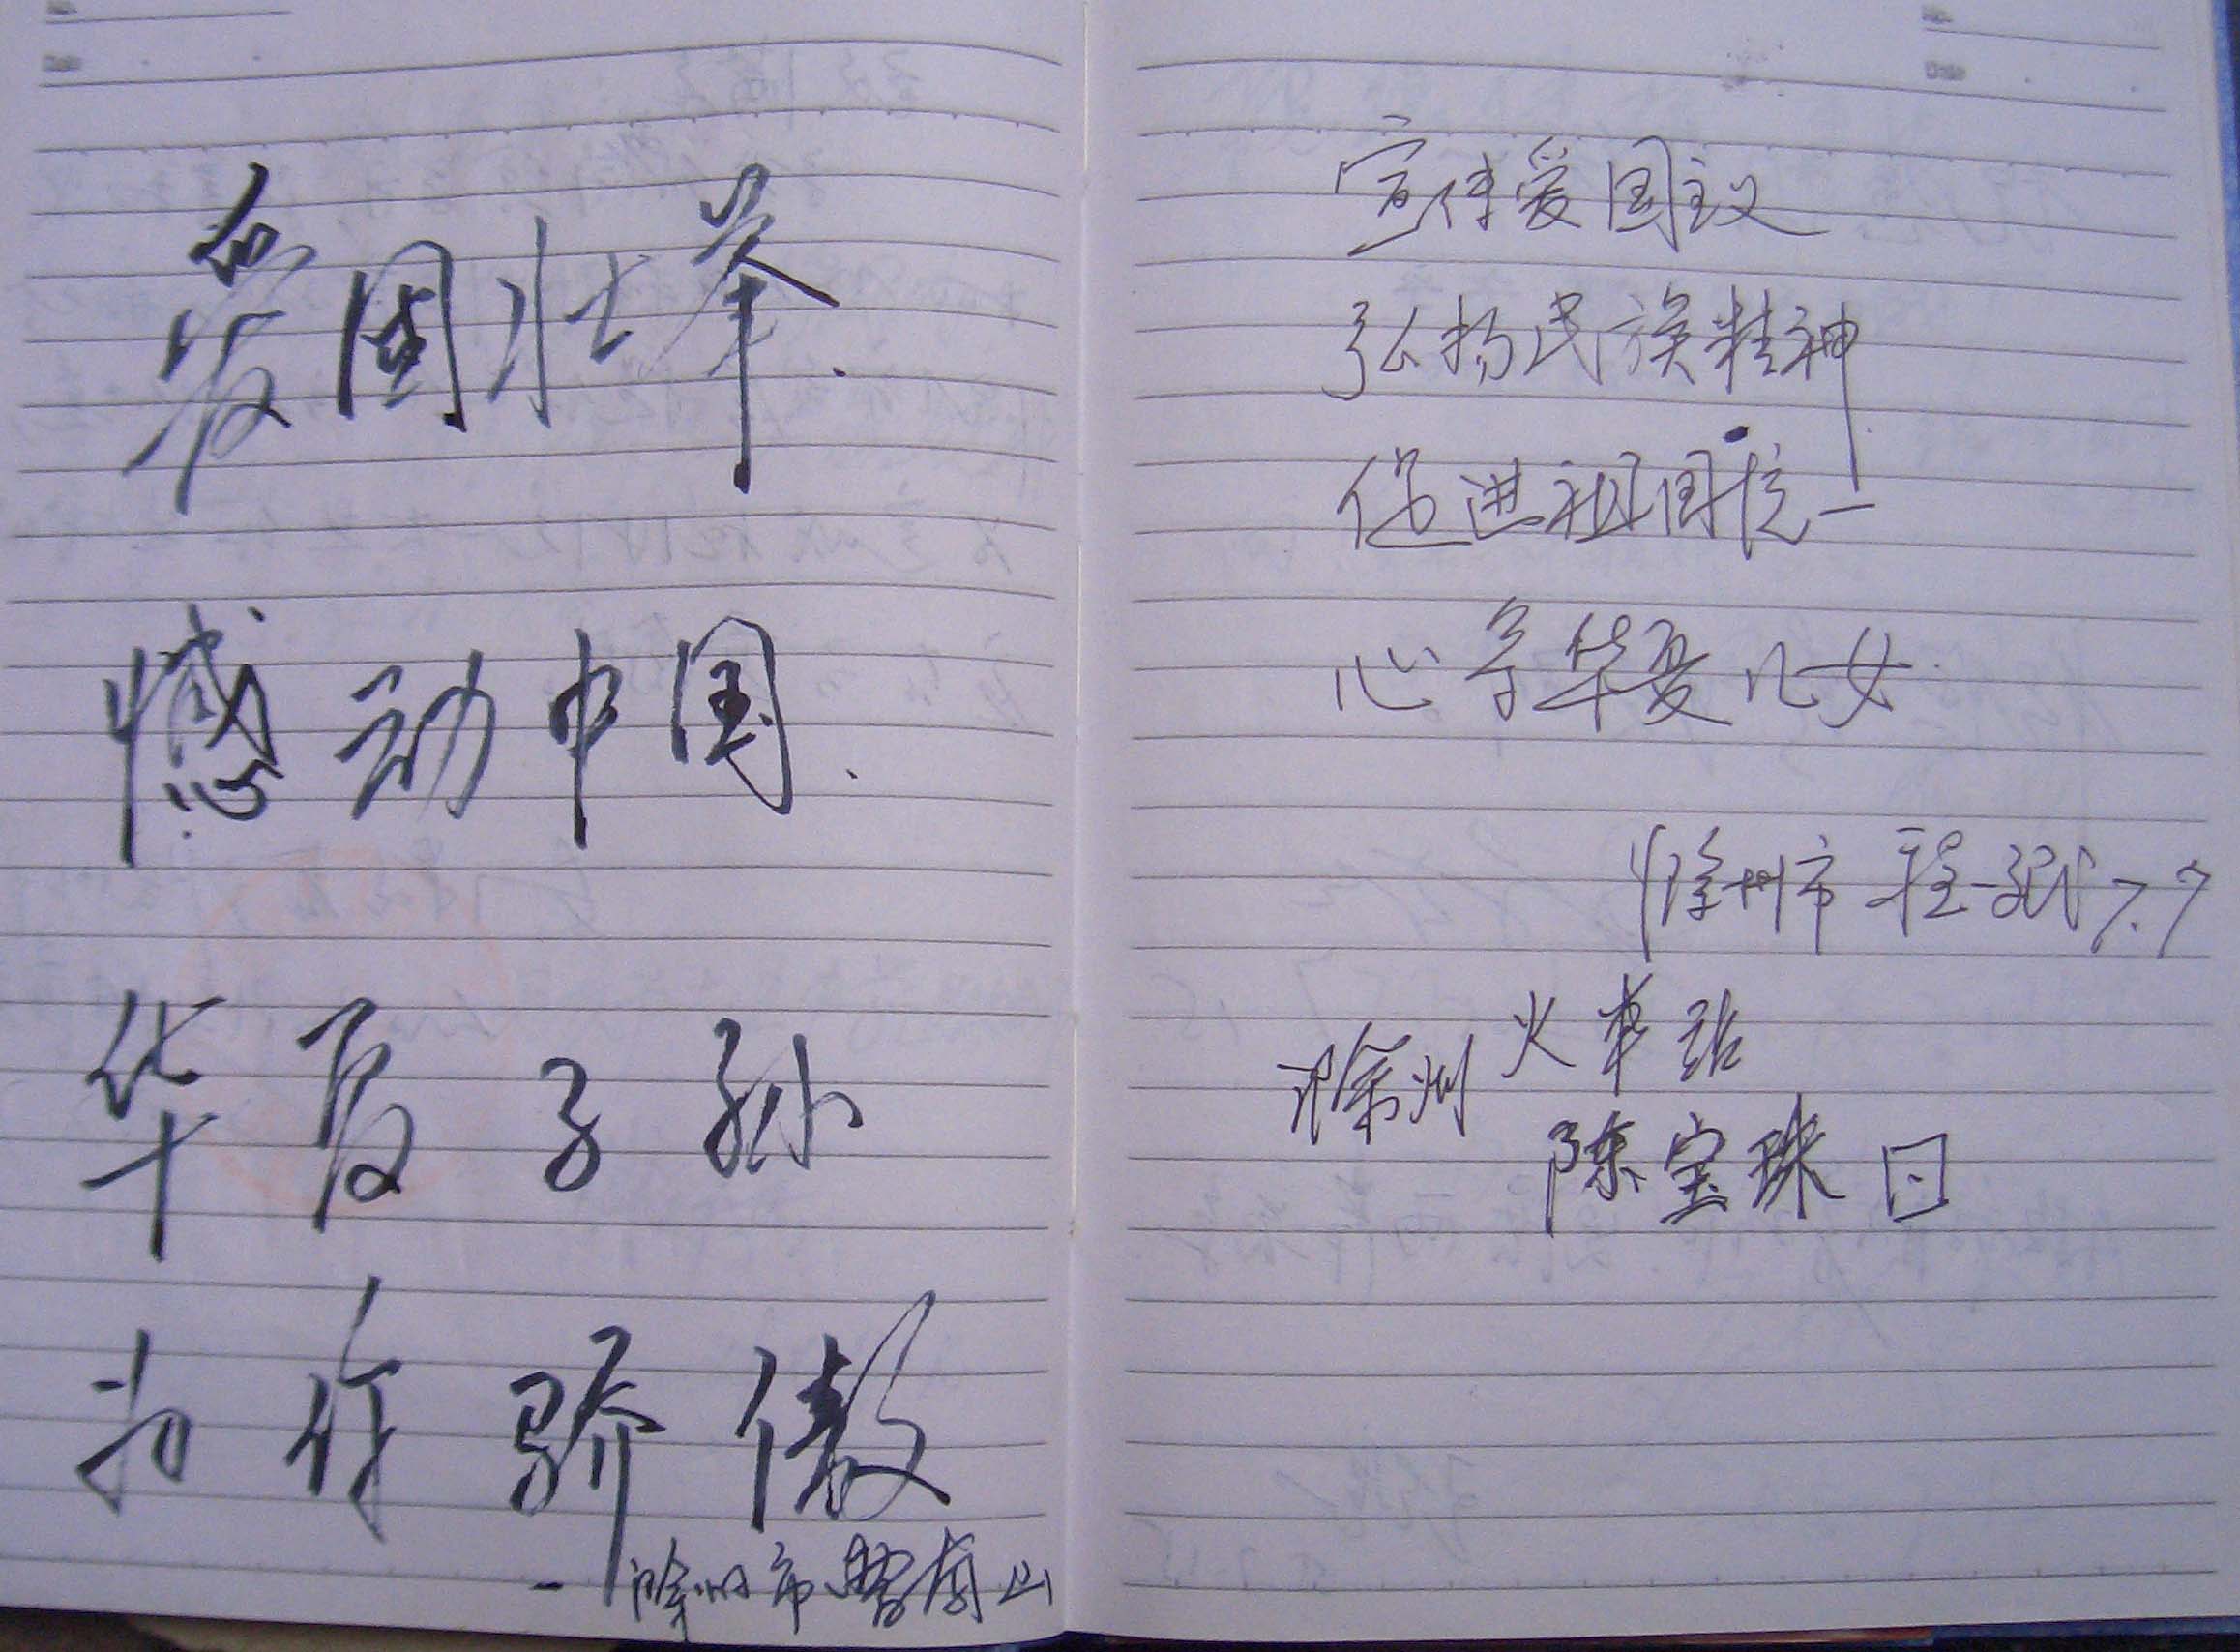 爱国壮举.
憾动中国.
华夏子孙
为你骄傲
一滁州市
宣传爱国主义
弘扬民族精神
促进祖国统一
心系华夏儿女.
滁州市 程 7.7
滁州 火车站
陈宝珠 日